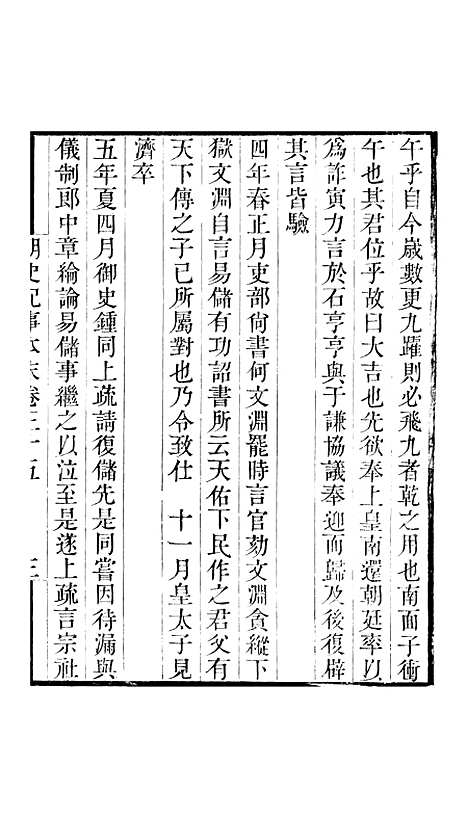 午乎自今歲數更九躍則必飛九者乾之用也南面子衝
午也其君位乎故曰大吉也先欲奉上皇南還朝廷率以
爲詐寅力言於石亨亨與于謙協議奉迎而歸及後復辟
其言皆驗
四年春正月吏部尙書何文淵罷時言官劾文淵貪縱下
獄文淵自言易儲有功詔書所云天佑下民作之君父有
天下傳之子已所屬對也乃令致仕　十一月皇太子見
濟卒
五年夏四月御史鍾同上疏請復儲先是同嘗因待漏與
儀制郎中章綸論易儲事繼之以泣至是遂上疏言宗社
明史紀事本末卷三十五　三